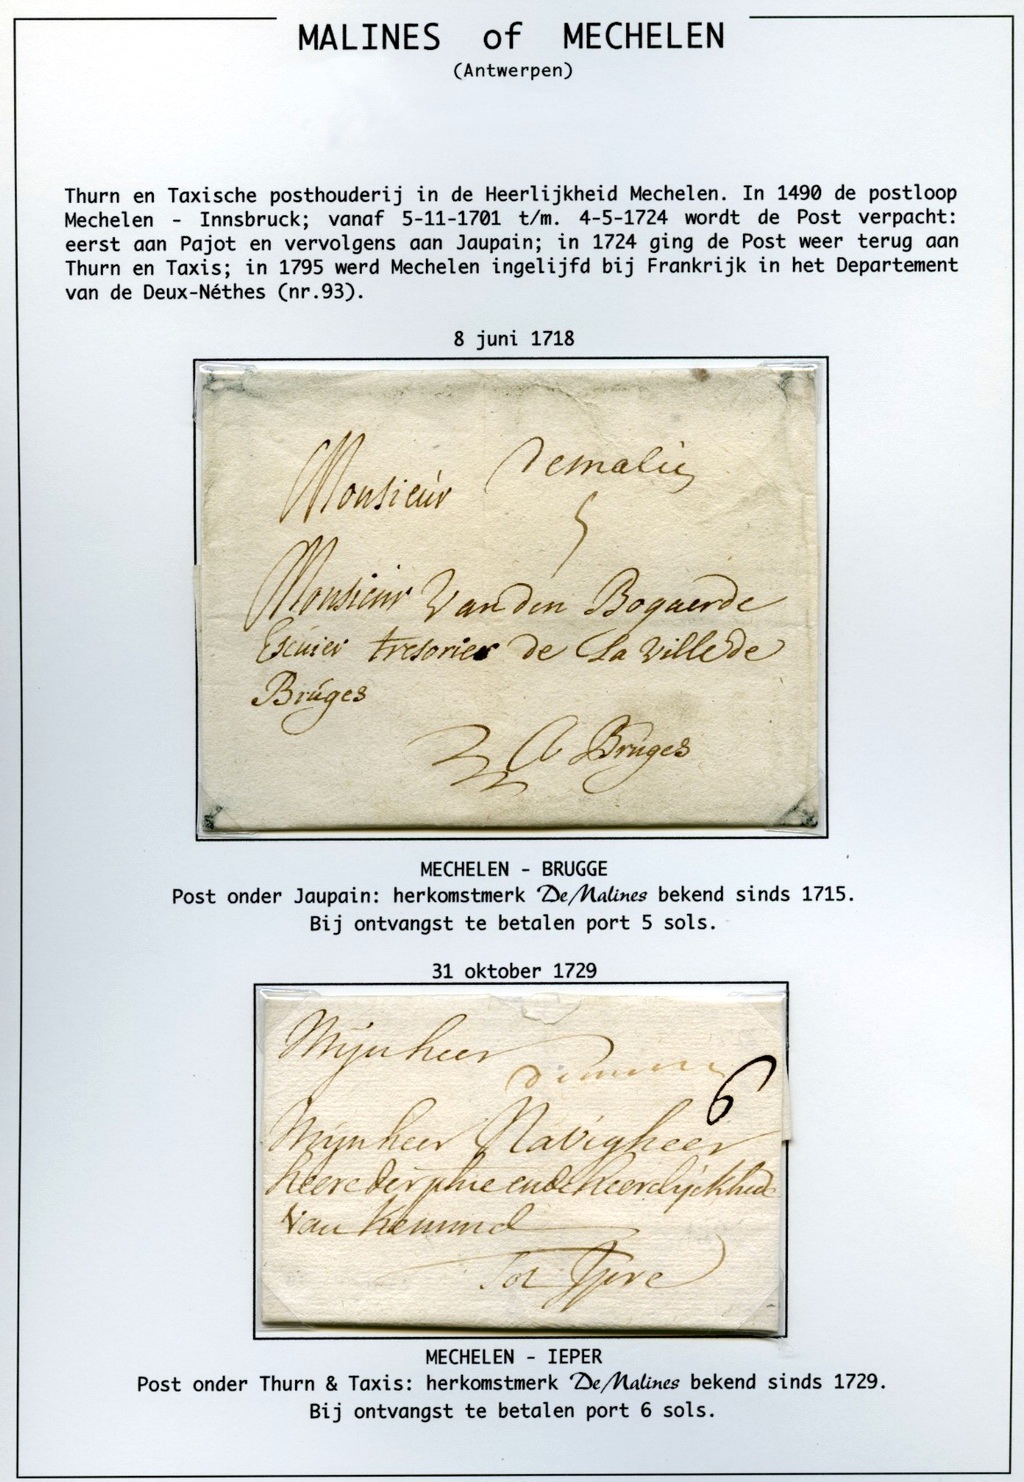 MALINES of MECHELEN
(Antwerpen)
Thurn en Taxische posthouderij in de Heerlijkheid Mechelen. In 1490 de postloop
Mechelen - Innsbruck; vanaf 5-11-1701 t/m. 4-5-1724 wordt de Post verpacht:
eerst aan Pajot en vervolgens aan Jaupain; in 1724 ging de Post weer terug aan
Thurn en Taxis; in 1795 werd Mechelen ingelijfd bij Frankrijk in het Departement
van de Deux-Néthes (nr.93).
8 juni 1718
Demalin
Monsieur
5
Monsieur Van den Bogaerde
Escuier tresorier de La Ville de
Bruges
A Bruges
MECHELEN - BRUGGE
Post onder Jaupain: herkomstmerk De Malines bekend sinds 1715.
Bij ontvangst te betalen port 5 sols.
31 oktober 1729
Mijn heer
6
Mijn heer Navigheer
heere der ende heerelijckhede
van
Tot Ypre
MECHELEN - IEPER
Post onder Thurn & Taxis: herkomstmerk De Malines bekend sinds 1729.
Bij ontvangst te betalen port 6 sols.